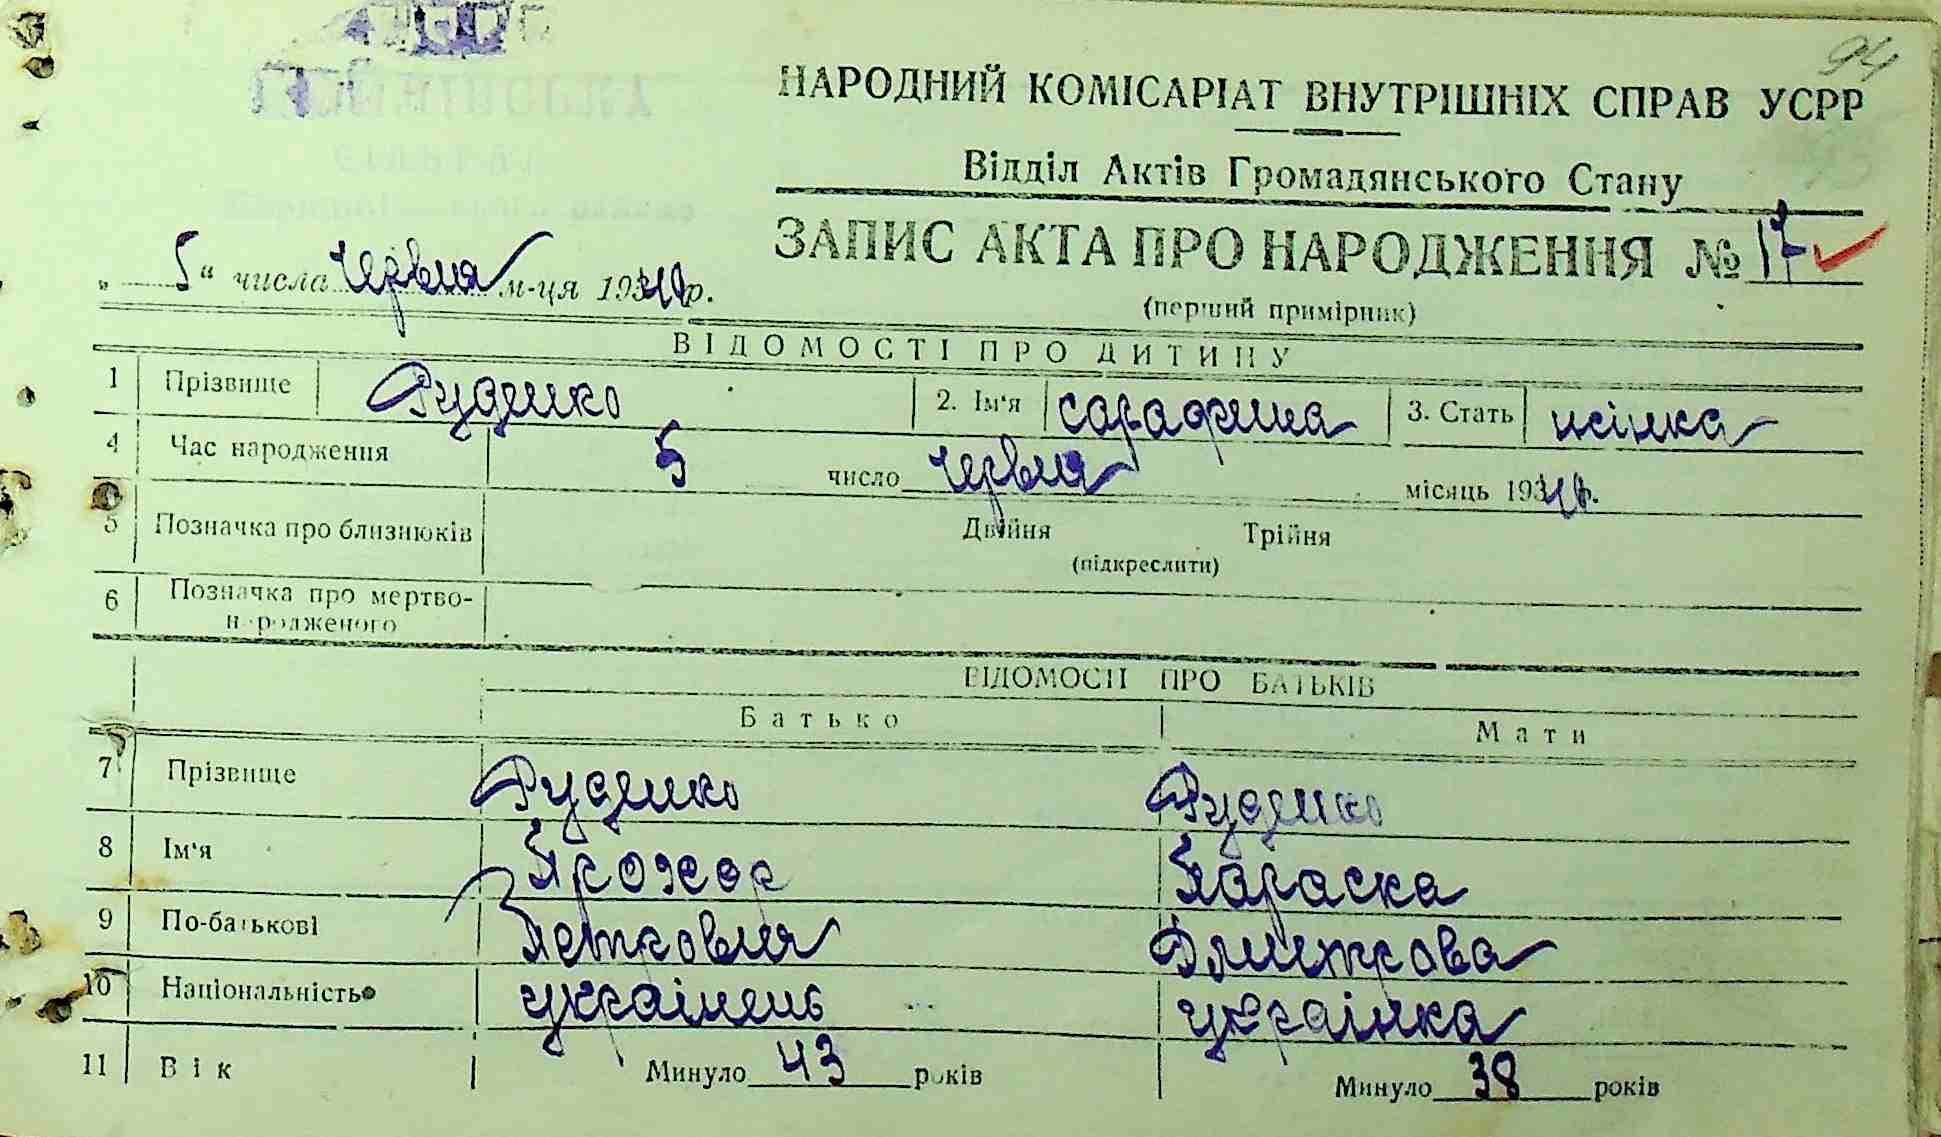 94
НАРОДНИЙ КОМІСАРІАТ ВНУТРІШНІХ СПРАВ УСРР
Відділ Актів Громадянського Стану
ЗАПИС АКТА ПРО НАРОДЖЕННЯ № 17
„ 5 “ числа червня м-ця 193 р.
(перший примірник)
ВІДОМОСТІ ПРО ДИТИНУ
1 Прізвище Руденко 2. Ім'я сарафина 3. Стать жінка
4 Час народження 5 число червня місяць 193
5 Позначка про близнюків Двійня Трійня
(підкреслити)
6 Позначка про мертво-
народженого
ВІДОМОСТІ ПРО БАТЬКІВ
Батько Мати
7 Прізвище Руденко Руденко
8 Ім'я Параска
9 По-батькові Дмиткова
10 Національність українець українка
11 Вік Минуло 43 років Минуло 38 років